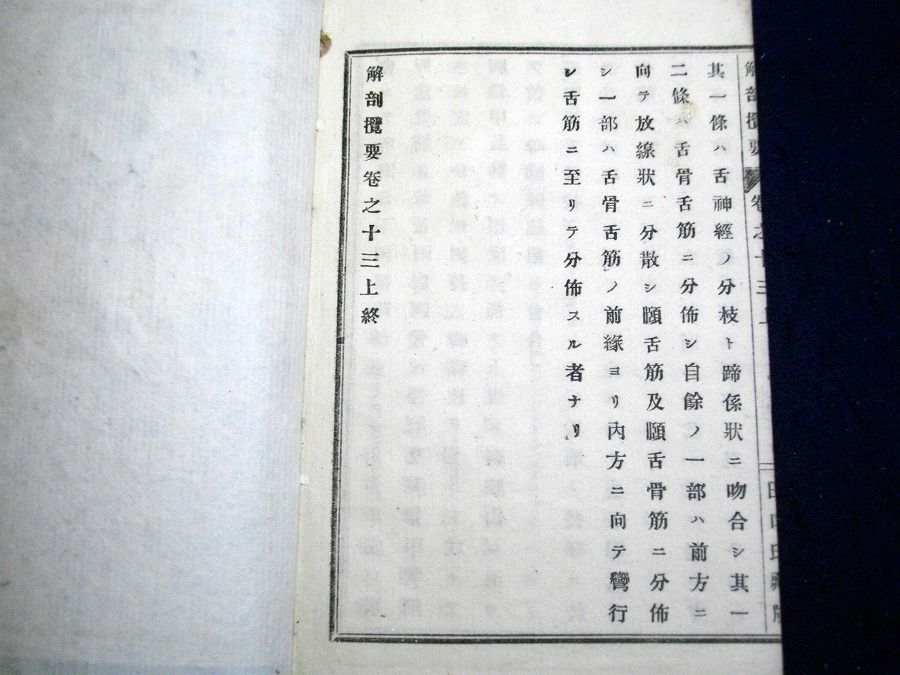 解剖攬要 卷之十三上
田口氏藏版
其一條ハ舌神經ノ分枝ト蹄係狀ニ吻合シ其一
二條ハ舌骨舌筋ニ分佈シ自餘ノ一部ハ前方ニ
向テ放線狀ニ分散シ頤舌筋及頤舌骨筋ニ分佈
シ一部ハ舌骨舌筋ノ前緣ヨリ內方ニ向テ彎行
シ舌筋ニ至リテ分佈スル者ナリ
解剖攬要卷之十三上終